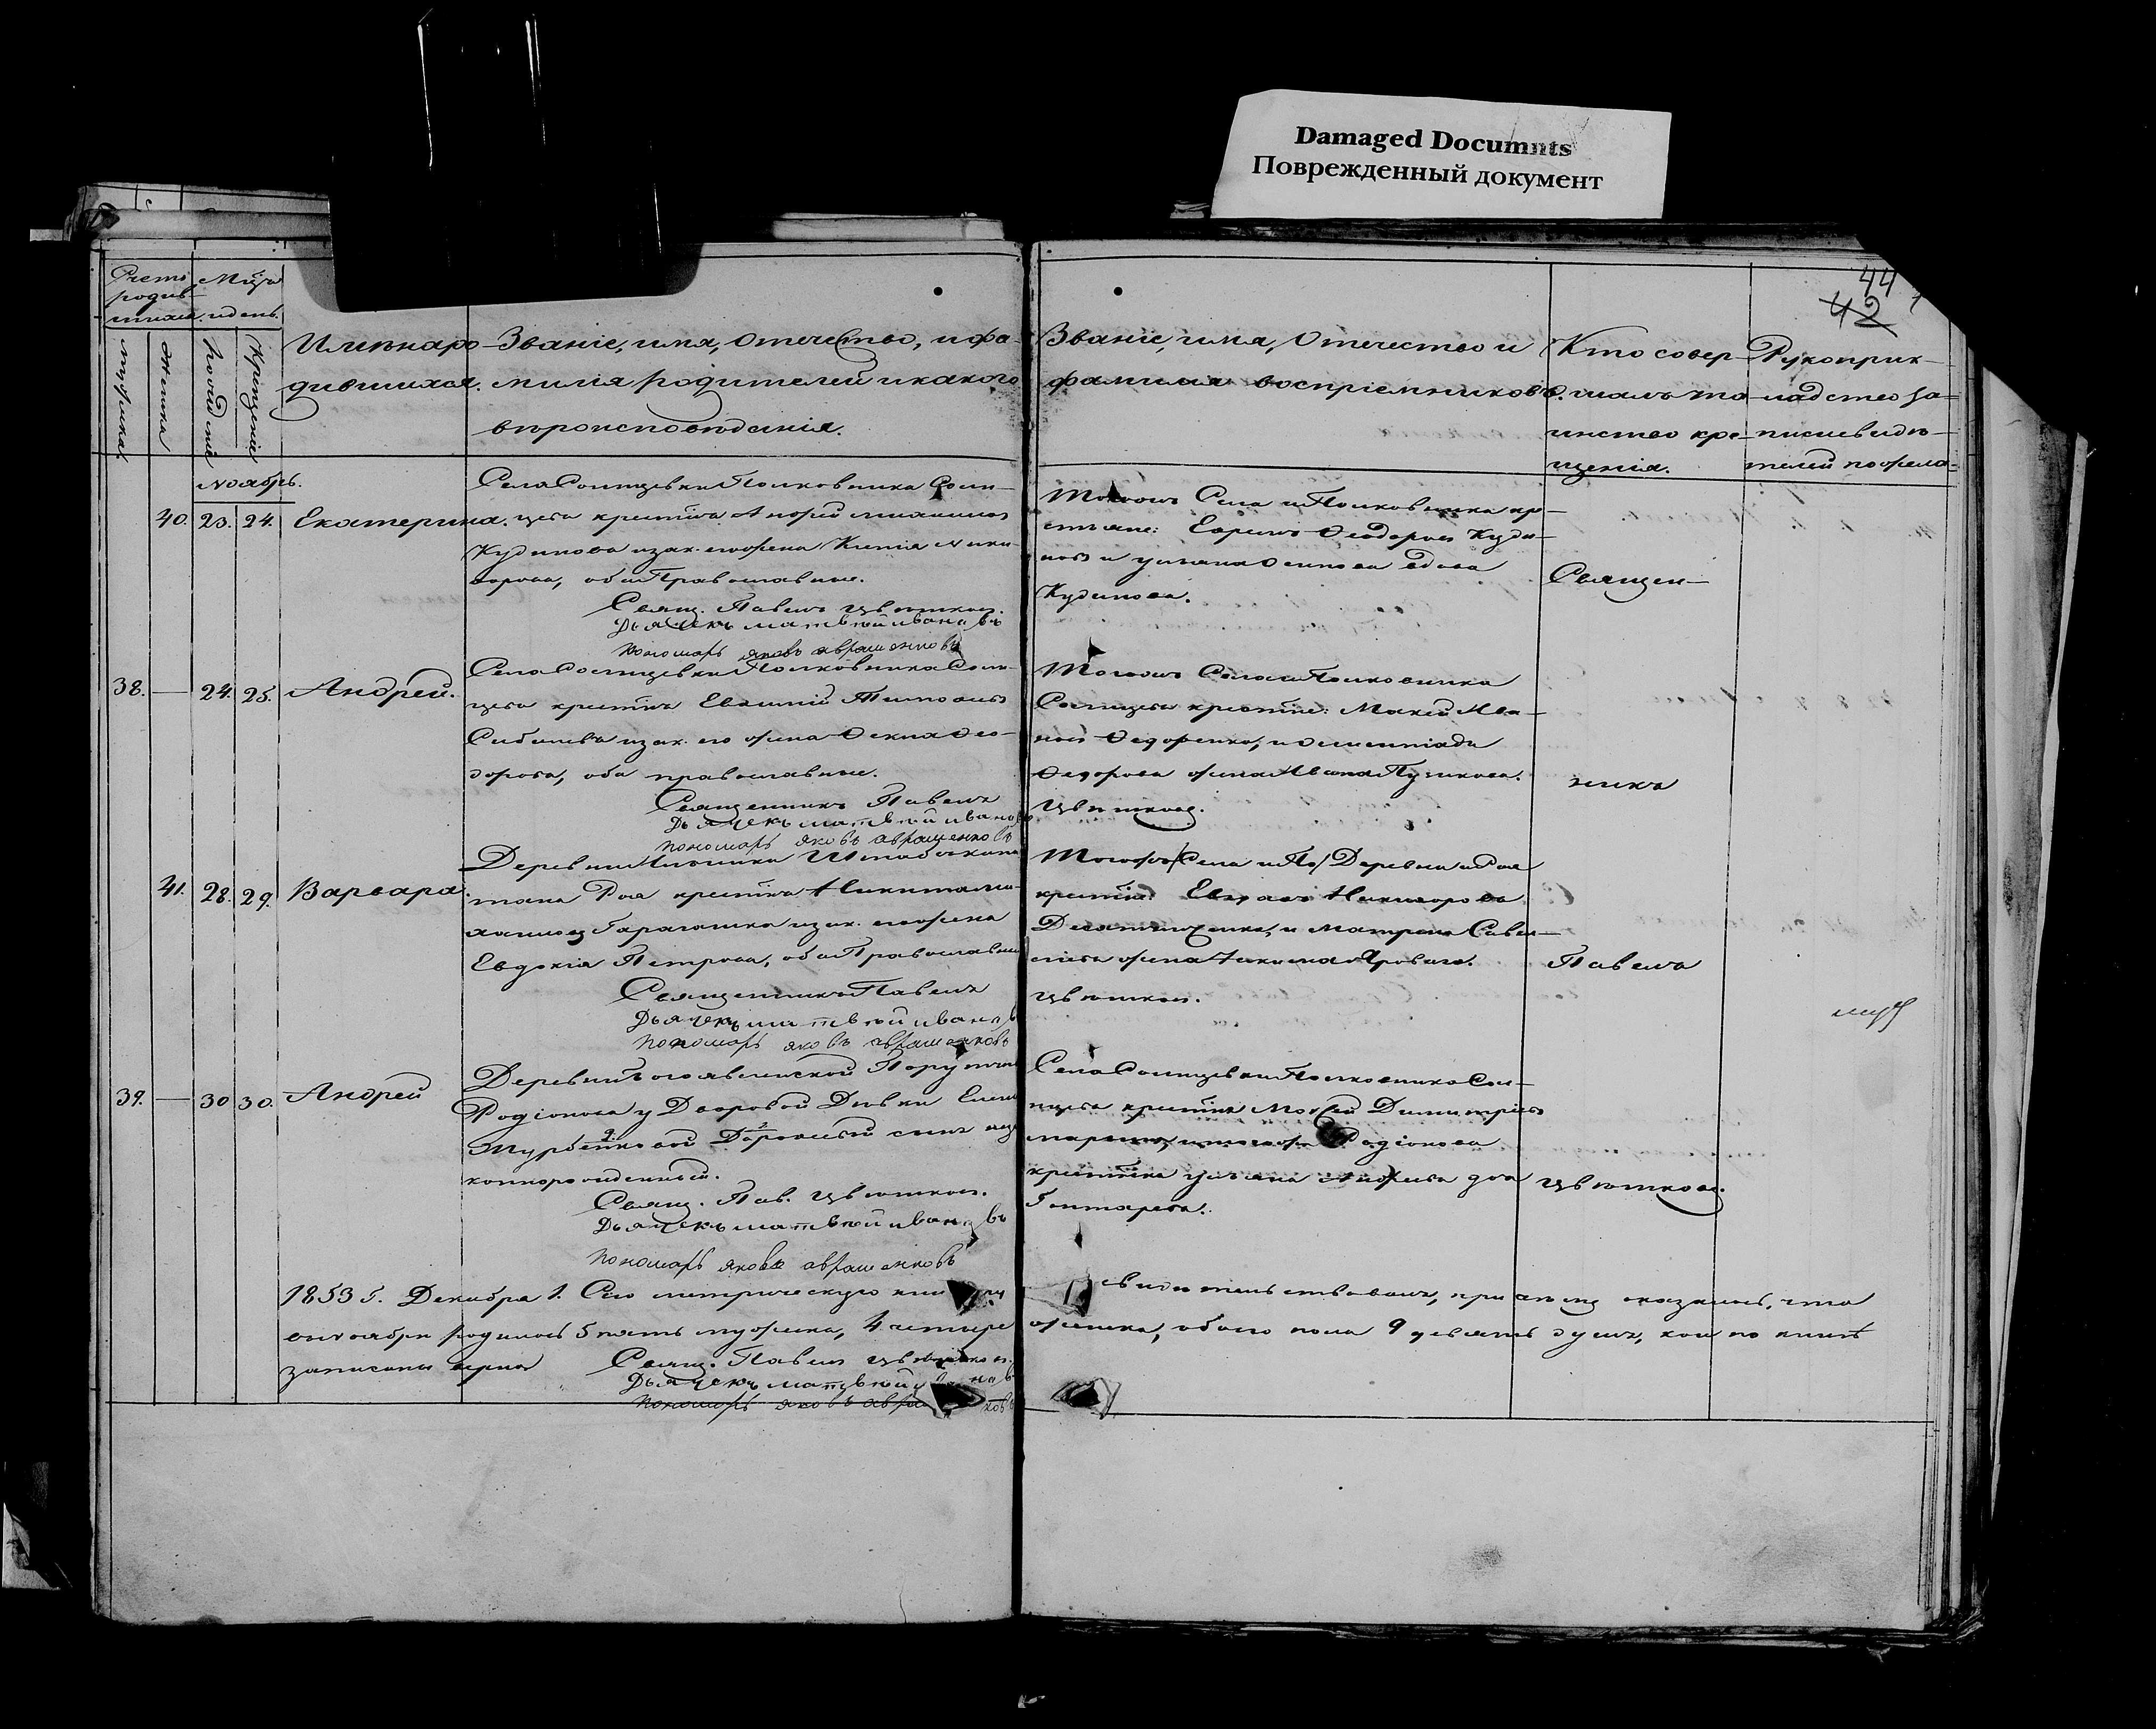 Damaged Documnts
Поврежденный документ
44
42
Счетъ родив-шихся.
Мѣсяцъ и день.
мужеска.
женска
Рожденія
Крещенія
Имена ро-
дившихся.
Званіе, имя, отечество, и фа-
милія родителей и какого
вѣроисповѣданія.
Званіе, имя, отечество и
фамилія воспріемниковъ.
Кто совер-
шалъ та-
инство кре-
щенія.
Рукоприк-
ладство за-
писи свидѣ-
телей по жела-
Ноябрь.
40. 23. 24. Екатерина.
Села Солнцевки Полковника Солн-
цева крестьянинъ
Кудинова и зак. его жена Ксенія Ники-
форова, оба Православные.
Свящ. Павелъ Цвѣтковъ.
Дьячекъ Матвѣй Ивановъ
Пономарь Яковъ Авраменковъ
Тогожъ Села и Полковника кр-
стьяне: Ефремъ Ѳеодоровъ Куди-
новъ и Ульяна вдова
Кудинова.
Священ-
38. — 24. 25. Андрей.
Села Солнцевки Полковника Солн-
цева крестьнъ Евсигній Тимоѳеевъ
и зак. его жена Ѳекла Ѳео-
дорова, оба православные.
Священникъ Павелъ
Дьячекъ Матвѣй Ивановъ
пономарь Яковъ Авраменковъ
Тогожъ Села и Полковника
Солнцева крестьне: Мокей Ива-
новъ Ѳедоренко, и Олимпіада
Ѳедорова жена Ивана Пузикова.
Цвѣтковъ.
никъ
41. 28. 29. Варвара
Деревни Штабсъ капи-
тана Роя крестьнъ Никита Ми-
хаиловъ и зак. его жена
Евдокія Петрова, оба Православные
Священникъ Павелъ
Дьячекъ Матвѣй Ивановъ
Пономарь Яковъ Авраменковъ
Тогожъ /Села и По/ Деревни и Роя
крестьне: Никифоровъ
и Матрена Савел-
ьева жена Яроваго.
Цвѣтковъ.
Павелъ
39. — 30 30. Андрей
Деревни Богоявленской Поручика
Родіонова у Дворовой Дѣвки Елены
сынъ неза-
коннорожденный.
Свящ. Пав. Цвѣтковъ.
Дьячекъ Матвѣй Ивановъ
Пономарь Яковъ Авраменковъ
Села Солнцевки Полковника Сол-
нцева крестьнъ Моисей Димитріевъ
Родіонова
крестьнка Ульяна
Цвѣтковъ.
1853 г. Декабря 1. Сію метрическую книгу свидѣтельствовалъ, при чемъ оказалось, что
въ ноябрѣ родилось 5 пять мужеска, 4 четыре женска, обоего пола 9 девять душъ, кои по книгѣ
записаны вѣрно
Свящ. Павелъ Цвѣтковъ.
Дьячекъ Матвѣй Ивановъ
Пономарь Яковъ Авраменковъ